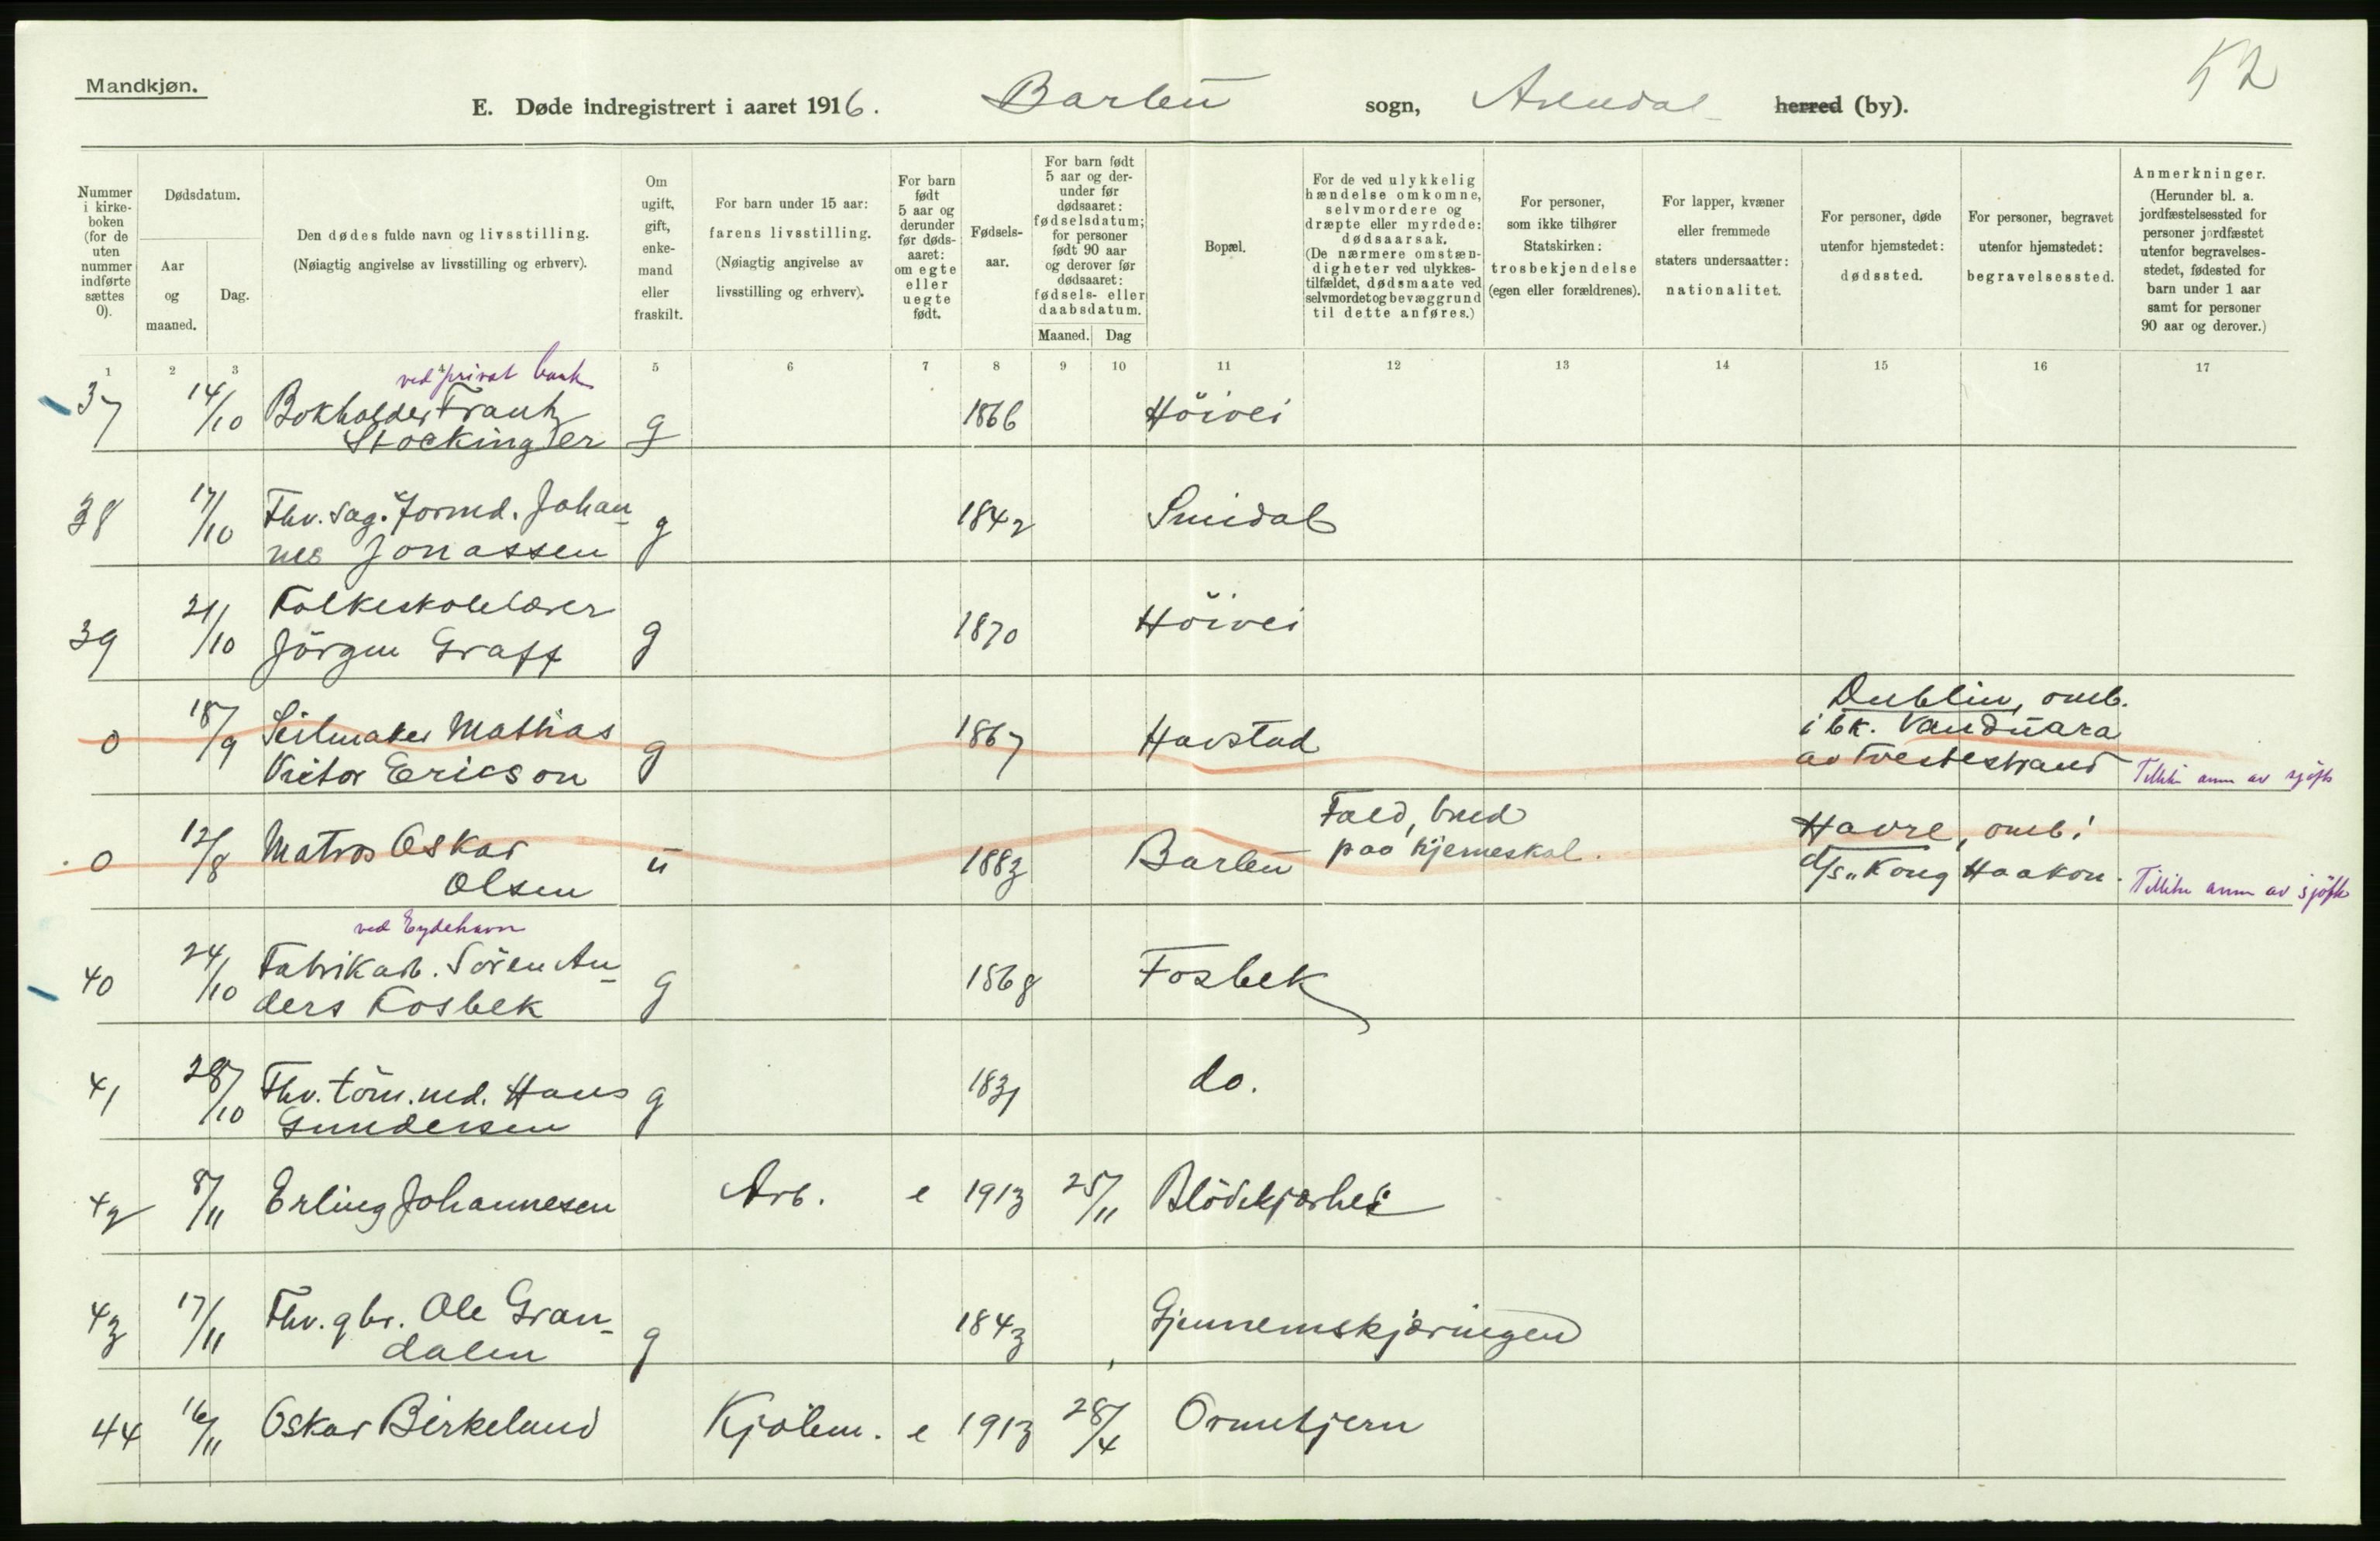 52
Mandkjøn.
E. Døde indregistrert i aaret 1916. Barbu sogn, Arendal herred (by).
Nummer i kirkeboken (for de uten nummer indførte sættes 0).
Dødsdatum.
Aar og maaned.
Dag.
Den dødes fulde navn og livsstilling.
(Nøiagtig angivelse av livsstilling og erhverv).
Om ugift, gift, enkemand eller fraskilt.
For barn under 15 aar: farens livsstilling. (Nøiagtig angivelse av livsstilling og erhverv).
For barn født 5 aar og derunder før dødsaaret: om egte eller uegte født.
Fødselsaar.
For barn født 5 aar og derunder før dødsaaret: fødselsdatum; for personer født 90 aar og derover før dødsaaret: fødsels- eller daabsdatum.
Maaned. Dag
Bopæl.
For de ved ulykkelig hændelse omkomne, selvmordere og dræpte eller myrdede: dødsaarsak. (De nærmere omstændigheter ved ulykkestilfældet, dødsmaate ved selvmordet og bevæggrund til dette anføres.)
For personer, som ikke tilhører Statskirken: trosbekjendelse (egen eller forældrenes).
For lapper, kvæner eller fremmede staters undersaatter: nationalitet.
For personer, døde utenfor hjemstedet: dødssted.
For personer, begravet utenfor hjemstedet: begravelsessted.
Anmerkninger. (Herunder bl. a. jordfæstelsessted for personer jordfæstet utenfor begravelsesstedet, fødested for barn under 1 aar samt for personer 90 aar og derover.)
1 2 3 4 5 6 7 8 9 10 11 12 13 14 15 16 17
ved privat bank
37 14/10 Bokholder Frantz g 1866 Höivei
Stockinger
38 17/10 Fhv. sag.formd. Johan- g 1842
nes Jonassen
39 21/10 Folkeskolelærer g 1870 Höivei
Jörgen Graff
0 18/9 Seilmaker Mathias g 1867 Havstad Dublin, omb.
Victor Ericson i bk. Vanduara
av Tvedestrand av sjöfb
0 12/8 Matros Oskar ü 1883 Barbu Fald, brud Havre, omb i
Olsen paa hjerneskal. d/s "Kong Haakon. av sjöfb
ved Eydehavn
40 24/10 Fabrikarb. Sören An- g 1868 Fosbek
ders Fosbek
41 28/10 Fhv. töm.md. Hans g 1831 do.
Gundersen
42 8/11 Erling Johannesen Arb. e 1913 25/11 Blödekjærhei
43 17/11 Fhv. gbr. Ole Gran- g 1843 Gjennemskjæringen
dalen
44 16/11 Oskar Birkeland Kjölem. e 1913 28/4 Ormetjern